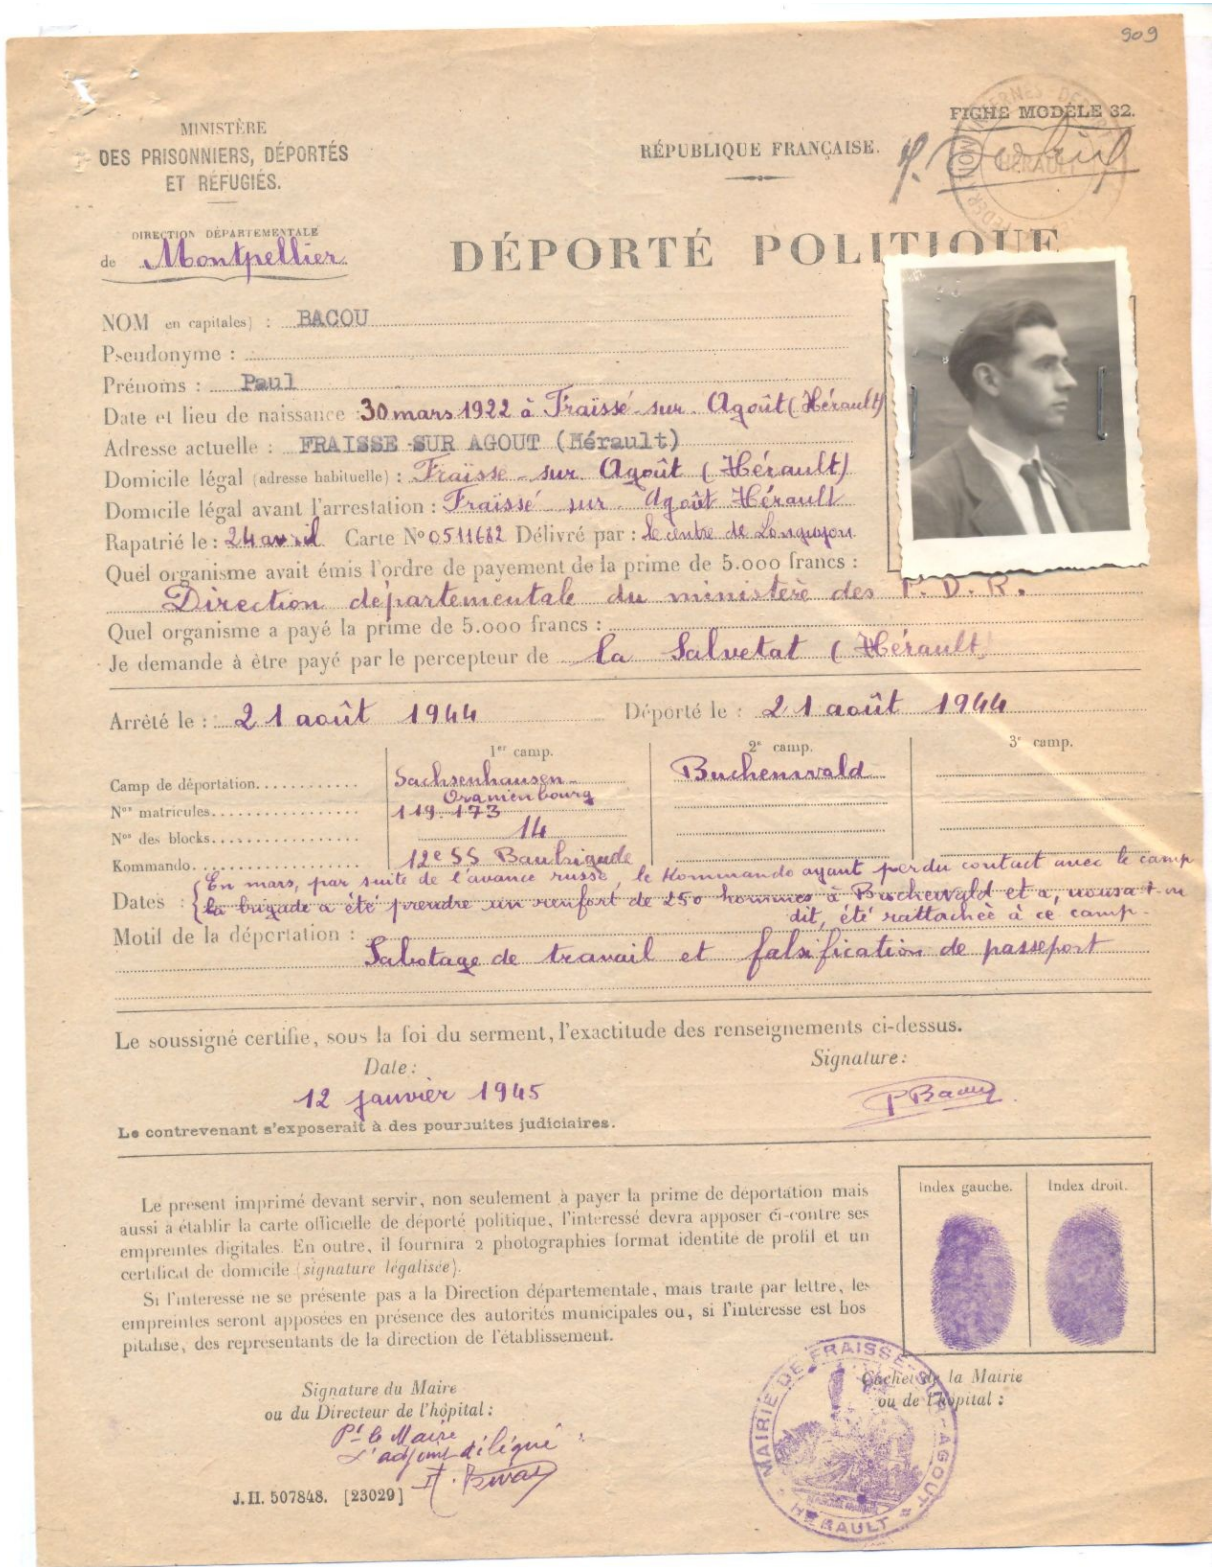 909
FICHE MODÈLE 32.
MINISTÈRE
DES PRISONNIERS, DÉPORTÉS
ET RÉFUGIÉS.
RÉPUBLIQUE FRANÇAISE.
HÉRAULT
DIRECTION DÉPARTEMENTALE
de Montpellier
DÉPORTÉ POLITIQUE
NOM en capitales) : BACOU
Pseudonyme :
Prénoms : Paul
Date et lieu de naissance : 30 mars 1922 à Fraïssé-sur-Agoût (Hérault)
Adresse actuelle : FRAISSE-SUR AGOUT (Hérault)
Domicile légal (adresse habituelle) : Fraïsse-sur Agoût (Hérault)
Domicile légal avant l'arrestation : Fraïssé sur Agoût Hérault
Rapatrié le : 24 avril Carte N° 0511682 Délivré par : le centre de Longuyon
Quel organisme avait émis l'ordre de payement de la prime de 5.000 francs :
Direction départementale du ministère des P. D. R.
Quel organisme a payé la prime de 5.000 francs :
Je demande à être payé par le percepteur de la Salvetat (Hérault)
Arrêté le : 21 août 1944 Déporté le : 21 août 1944
1er camp. 2e camp. 3e camp.
Camp de déportation Sachsenhausen- Buchenwald
Oranienbourg
Nos matricules 119.173
Nos des blocks 14
Kommando 12e SS Baubrigade
Dates : En mars, par suite de l'avance russe, le Kommando ayant perdu contact avec le camp
la brigade a été prendre un renfort de 250 hommes à Buchenvald et a, nous a t-on
dit, été rattachée à ce camp.
Motif de la déportation :
Sabotage de travail et falsification de passeport
Le soussigné certifie, sous la foi du serment, l'exactitude des renseignements ci-dessus.
Date : Signature :
12 janvier 1945
P Bacou
Le contrevenant s'exposerait à des poursuites judiciaires.
Le présent imprimé devant servir, non seulement à payer la prime de déportation mais
aussi à établir la carte officielle de déporté politique, l'intéressé devra apposer ci-contre ses
empreintes digitales. En outre, il fournira 2 photographies format identité de profil et un
certificat de domicile (signature légalisée).
Si l'interesse ne se présente pas a la Direction départementale, mais traite par lettre, les
empreintes seront apposées en présence des autorités municipales ou, si l'interesse est hos
pitalise, des représentants de la direction de l'établissement.
Index gauche. Index droit.
Signature du Maire
ou du Directeur de l'hôpital :
Pr le Maire
L'adjoint délégué :
Cachet de la Mairie
ou de l'hôpital :
MAIRIE DE FRAISSE-SUR-AGOUT
HÉRAULT
J.H. 507848. [23029]